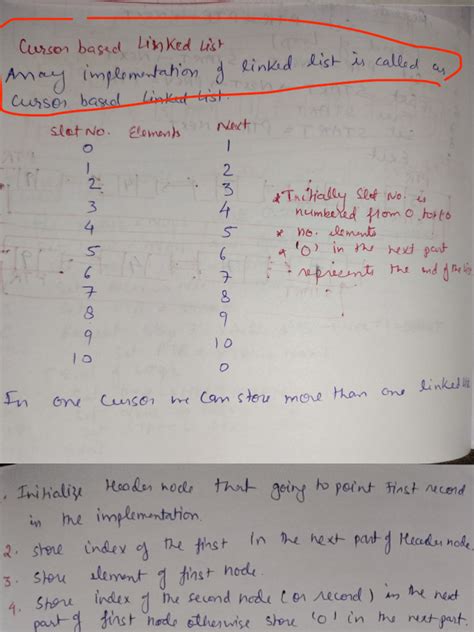 Cursor based Linked List
Array implementation of linked list is called as
cursor based linked list.
Slot No. Elements Next
0 1
1 2
2 3
3 4
4 5
5 6
6 7
7 8
8 9
9 10
10 0
* Initially Slot No. is
numbered from 0 to 10
* no. elements
* '0' in the next part
- represents the end of the
In one cursor we can store more than one linked
. Initialize Header node that going to point First record
in the implementation.
2. store index of the first In the next part of Header node.
3. Store element of first node.
4. Store index of the second node (or record) in the next
part of first node otherwise store '0' in the next part.